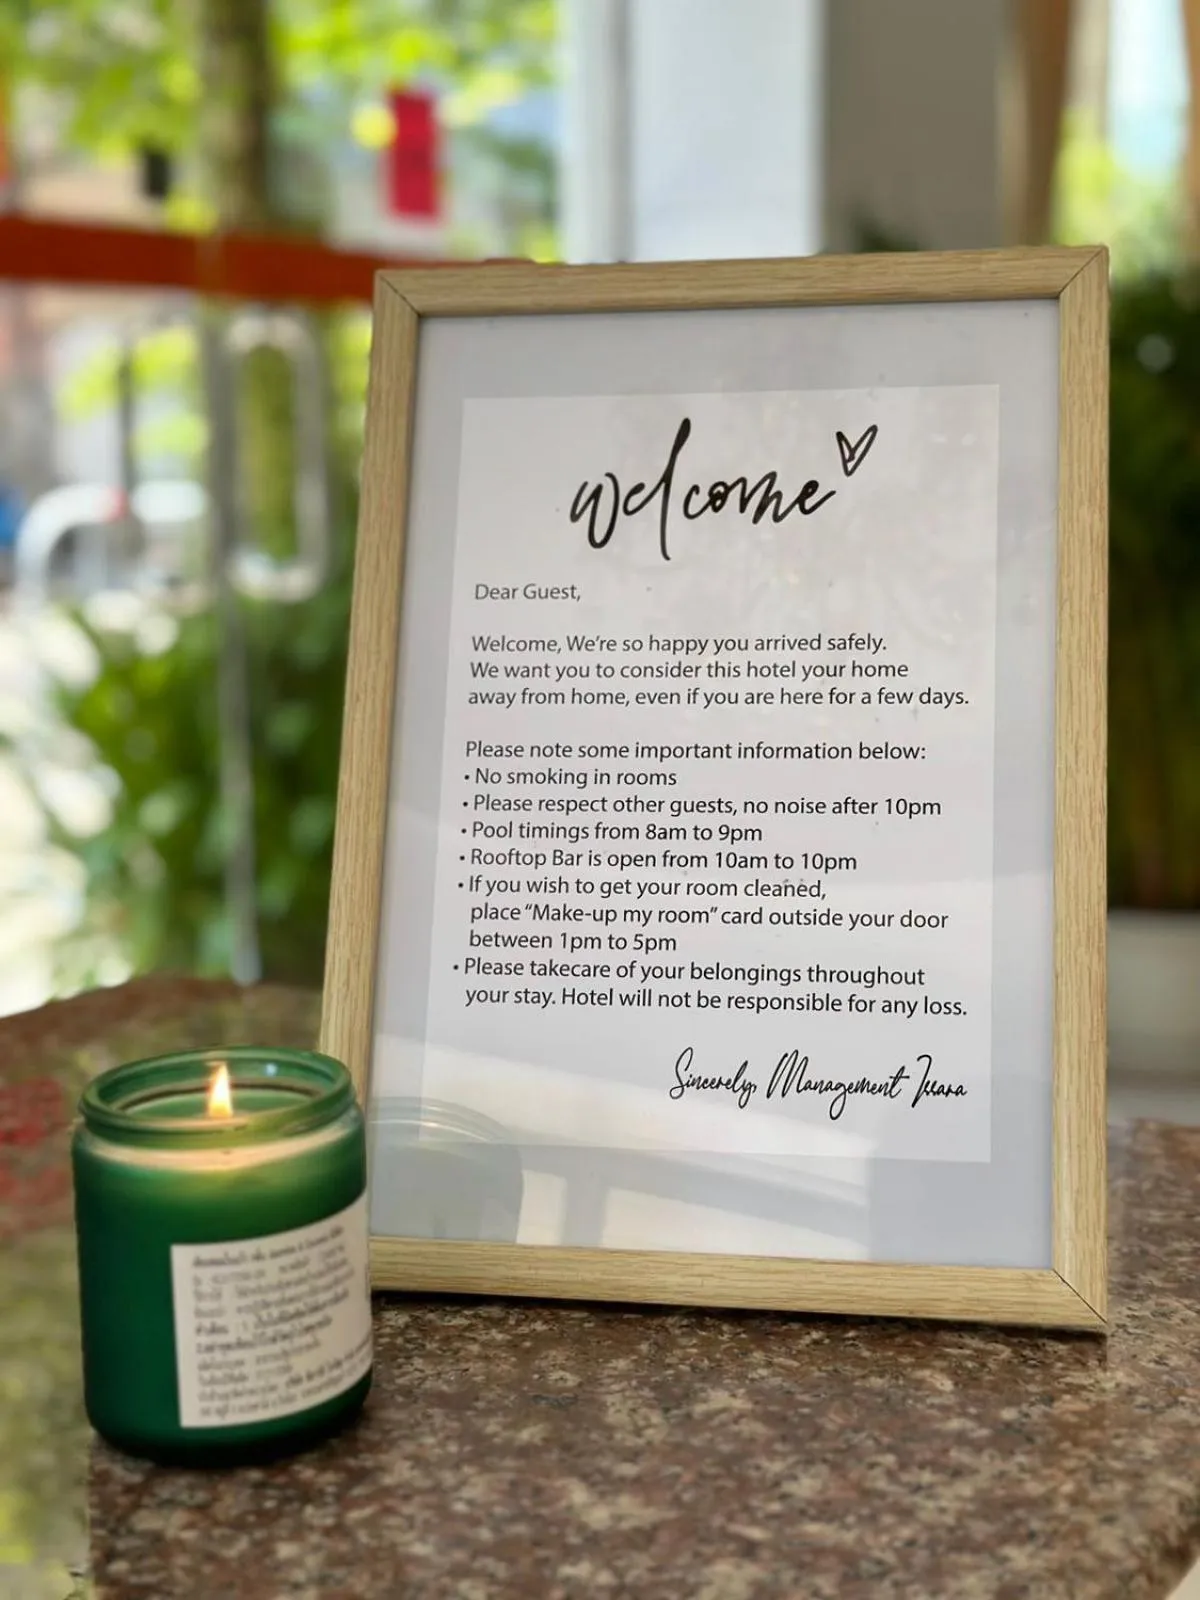 welcome
Dear Guest,
Welcome, We're so happy you arrived safely.
We want you to consider this hotel your home
away from home, even if you are here for a few days.
Please note some important information below:
• No smoking in rooms
• Please respect other guests, no noise after 10pm
• Pool timings from 8am to 9pm
• Rooftop Bar is open from 10am to 10pm
• If you wish to get your room cleaned,
place "Make-up my room" card outside your door
between 1pm to 5pm
• Please takecare of your belongings throughout
your stay. Hotel will not be responsible for any loss.
Sincerely, Management Issara